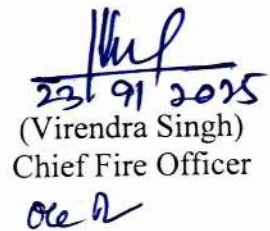 23/9/2025
(Virendra Singh)
Chief Fire Officer